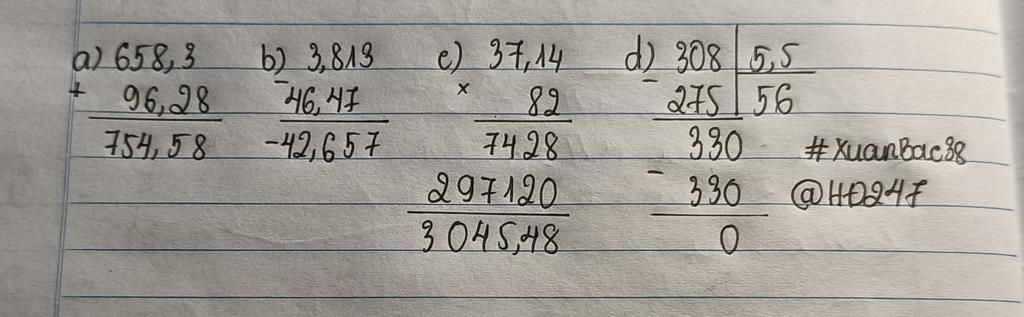 a) 658,3 b) 3,813 c) 37,14 d) 308 5,5
+ 96,28 - 46,47 × 82 - 275 56
754,58 -42,657 7428 330 #XuanBac38
297120 - 330 @HD247
3045,48 0